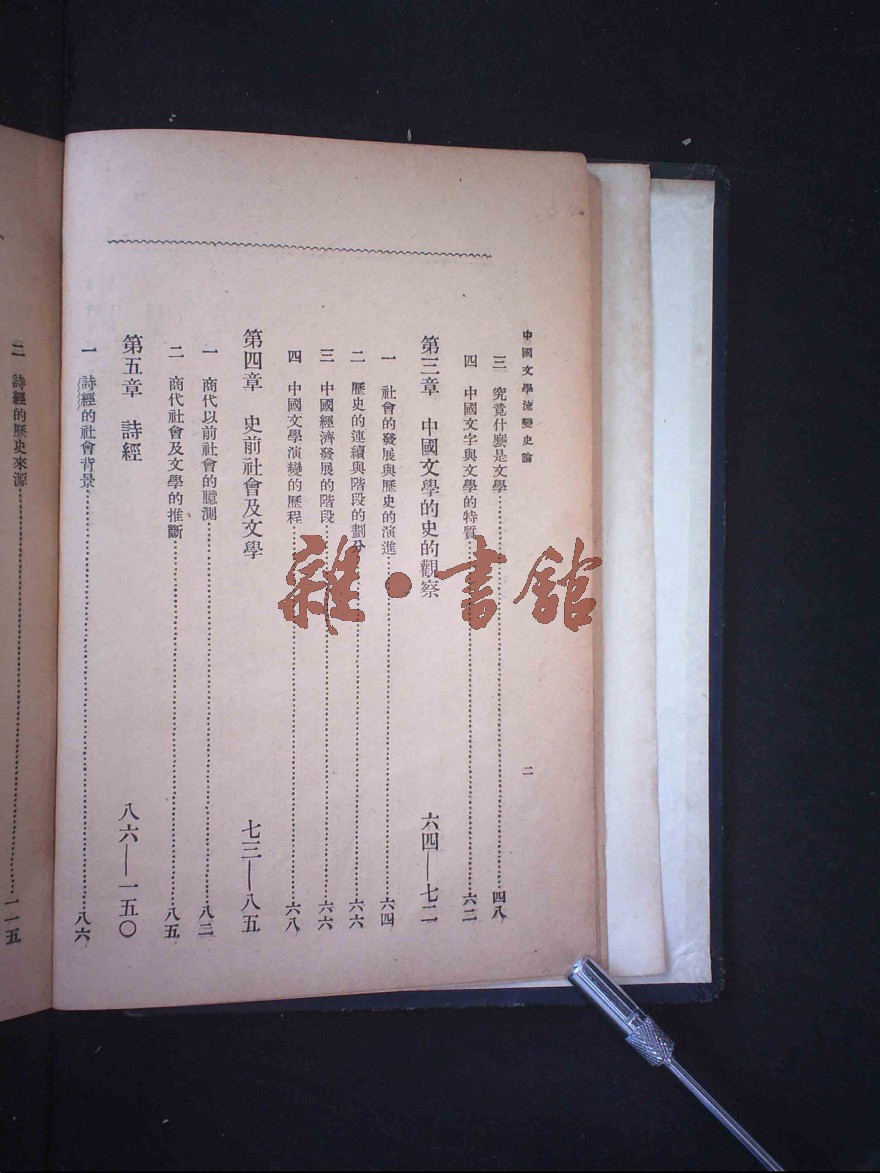 中國文學流變史論
二
三 究竟什麼是文學 四八
四 中國文字與文學的特質 六二
第三章 中國文學的史的觀察 六四—七二
一 社會的發展與歷史的演進 六四
二 歷史的連續與階段的劃分 六六
三 中國經濟發展的階段 六六
四 中國文學演變的歷程 六八
第四章 史前社會及文學 七三—八五
一 商代以前社會的臆測 八二
二 商代社會及文學的推斷 八五
第五章 詩經 八六—一五〇
一 詩經的社會背景 八六
二 詩經的歷史來源 一一五
雜·書館